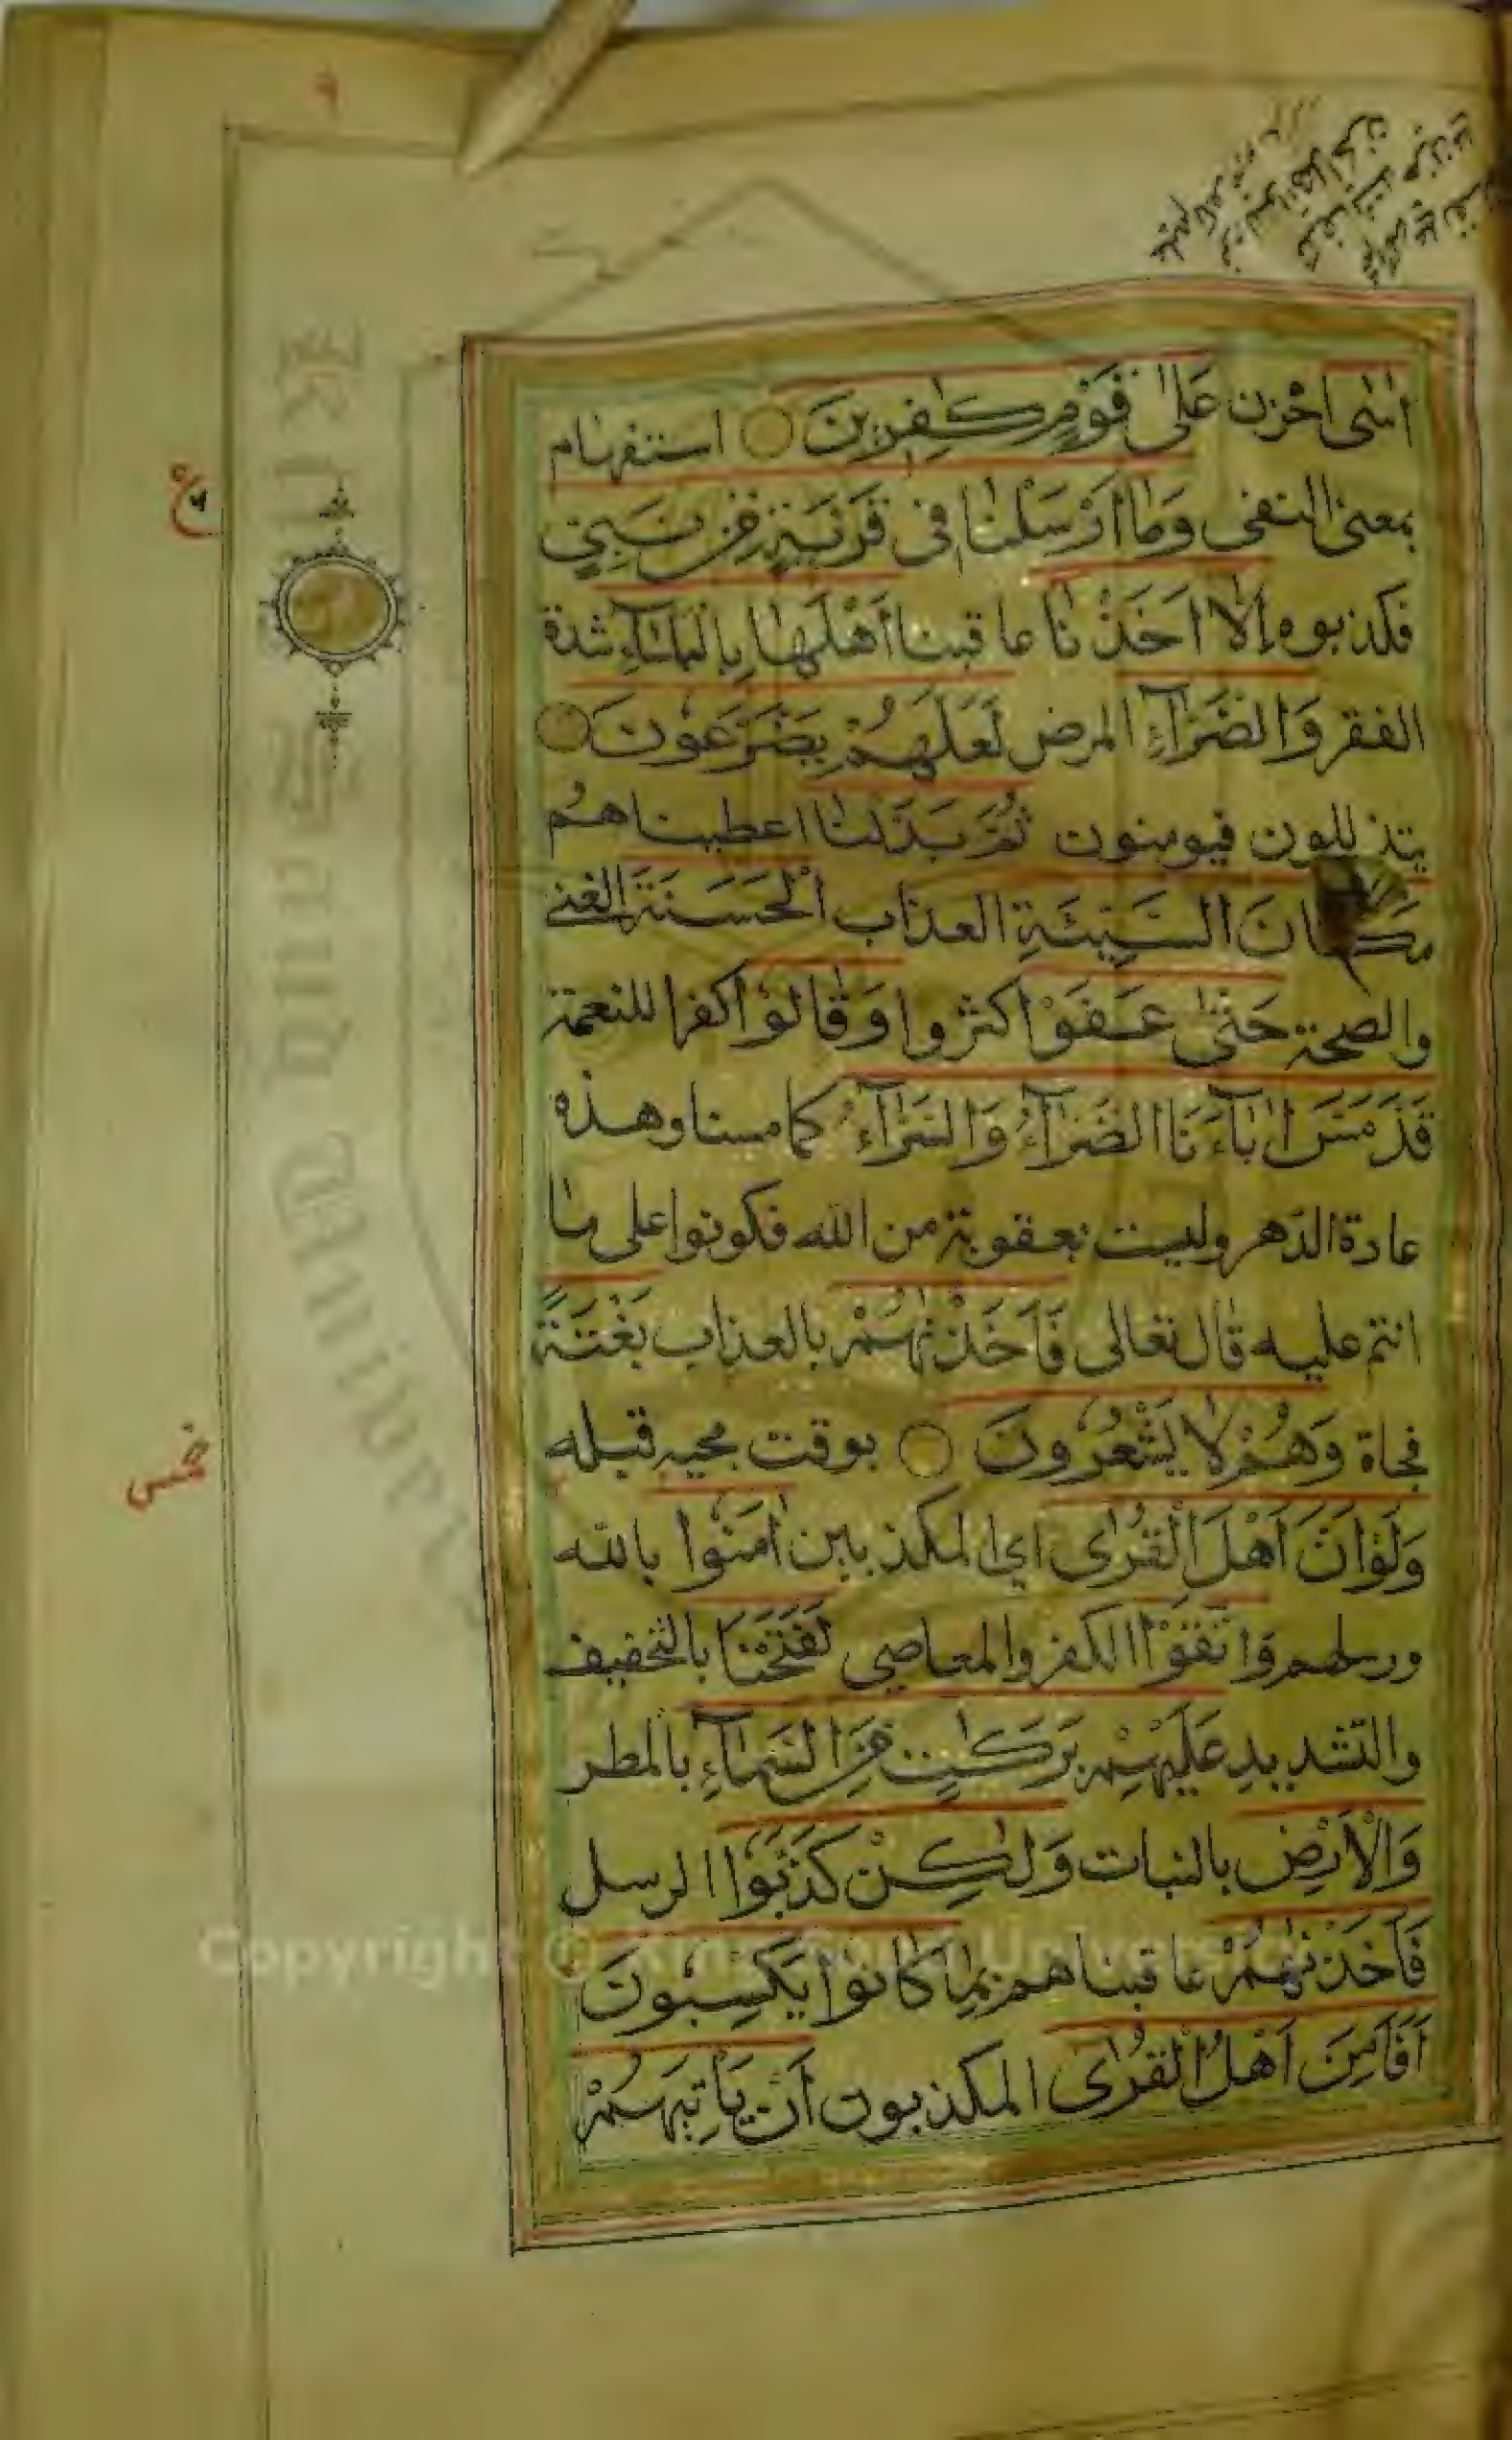 اٰسٰى احزن عَلٰى قَوْمٍ كٰفِرِيْنَ استفهام
بمعنى النفى وَمَا اَرْسَلْنَا فِى قَرْيَةٍ مِنْ نَبِىٍّ
فكذبوه اِلَّا اَخَذْنَا عاقبنا اَهْلَهَا بِالْبَاْسَآءِ شدة
الفقر وَالضَّرَّآءِ المرض لَعَلَّهُمْ يَضَّرَّعُونَ
يتذللون فيومنون ثُمَّ بَدَّلْنَا اعطيناهم
مَكَانَ السَّيِّئَةِ العذاب الْحَسَنَةَ الغنى
والصحة حَتّٰى عَفَوْا كثروا وَقَالُوْا كفرا للنعمة
قَدْ مَسَّ اٰبَآءَنَا الضَّرَّآءُ وَالسَّرَّآءُ كما مسنا وهذه
عادة الدهر وليست بعقوبة من الله فكونوا على ما
انتم عليه قال تعالى فَاَخَذْنٰهُمْ بالعذاب بَغْتَةً
فجاة وَهُمْ لَا يَشْعُرُونَ بوقت مجيه قبله
وَلَوْ اَنَّ اَهْلَ الْقُرٰى اي المكذبين اٰمَنُوا بالله
ورسلهم وَاتَّقَوْا الكفر والمعاصي لَفَتَحْنَا بالتخفيف
والتشديد عَلَيْهِمْ بَرَكٰتٍ مِنَ السَّمَآءِ بالمطر
وَالْاَرْضِ بالنبات وَلٰكِنْ كَذَّبُوْا الرسل
فَاَخَذْنٰهُمْ عاقبناهم بِمَا كَانُوْا يَكْسِبُونَ
اَفَاَمِنَ اَهْلُ الْقُرٰى المكذبون اَنْ يَاْتِيَهُمْ
ع
خمس
٩
Copyright © King Saud University